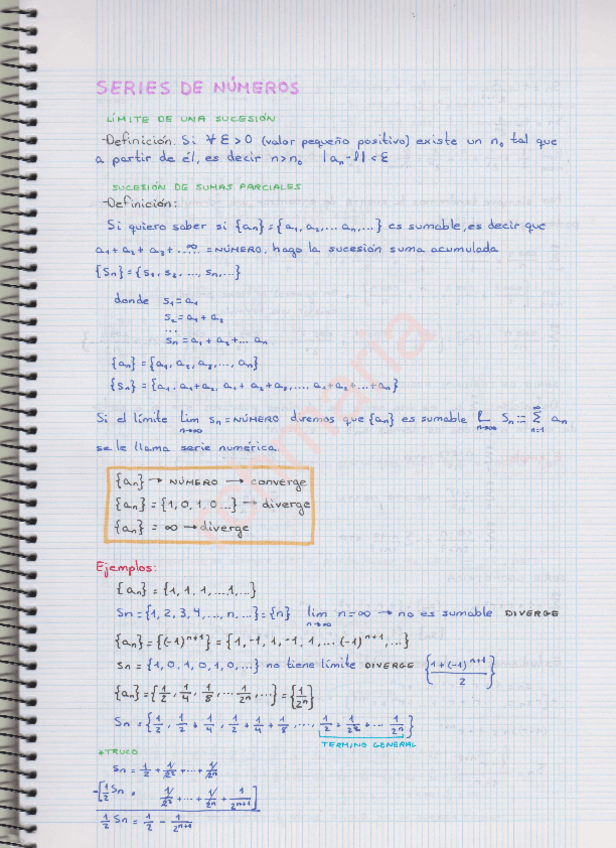 SERIES DE NÚMEROS
LÍMITE DE UNA SUCESIÓN
-Definición. Si ∀ ε > 0 (valor pequeño positivo) existe un n₀ tal que
a partir de él, es decir n>n₀ |aₙ-l| < ε
SUCESIÓN DE SUMAS PARCIALES
-Definición:
Si quiero saber si {aₙ}={a₁, a₂,... aₙ,...} es sumable, es decir que
a₁+a₂+a₃+ ....^∞ = NÚMERO, hago la sucesión suma acumulada
{Sₙ}={s₁, s₂, ..., sₙ,...}
donde s₁=a₁
s₂=a₁+a₂
...
sₙ=a₁+a₂+... aₙ
{aₙ}={a₁, a₂, a₃, ..., aₙ}
{Sₙ}={a₁, a₁+a₂, a₁+a₂+a₃, ... a₁+a₂+...+aₙ}
Si el límite lim n→∞ sₙ=NÚMERO diremos que {aₙ} es sumable n→∞ Sₙ := ∑ n=1 ∞ aₙ
se le llama serie numérica.
{aₙ} → NÚMERO → converge
{aₙ} = {1, 0, 1, 0...} → diverge
{aₙ} = ∞ → diverge
Ejemplos:
{aₙ} = {1, 1, 1, ...1,...}
Sₙ={1, 2, 3, 4,..., n,...}={n} lim n→∞ n=∞ → no es sumable DIVERGE
{aₙ}={(-1)ⁿ⁺¹} = {1, -1, 1, -1, 1, ... (-1)ⁿ⁺¹,...}
Sₙ = {1, 0, 1, 0, 1, 0,...} no tiene límite DIVERGE {1+(-1)ⁿ⁺¹/2}
{aₙ}={1/2, 1/4, 1/8, ... 1/2ⁿ,...} = {1/2ⁿ}
Sₙ={1/2, 1/2+1/4, 1/2+1/4+1/8, ..., 1/2+1/2²+... 1/2ⁿ}
TERMINO GENERAL
*TRUCO
Sₙ = 1/2 + 1/2² + ... + 1/2ⁿ
-[1/2 Sₙ = 1/2² + ... + 1/2ⁿ + 1/2ⁿ⁺¹]
1/2 Sₙ = 1/2 - 1/2ⁿ⁺¹